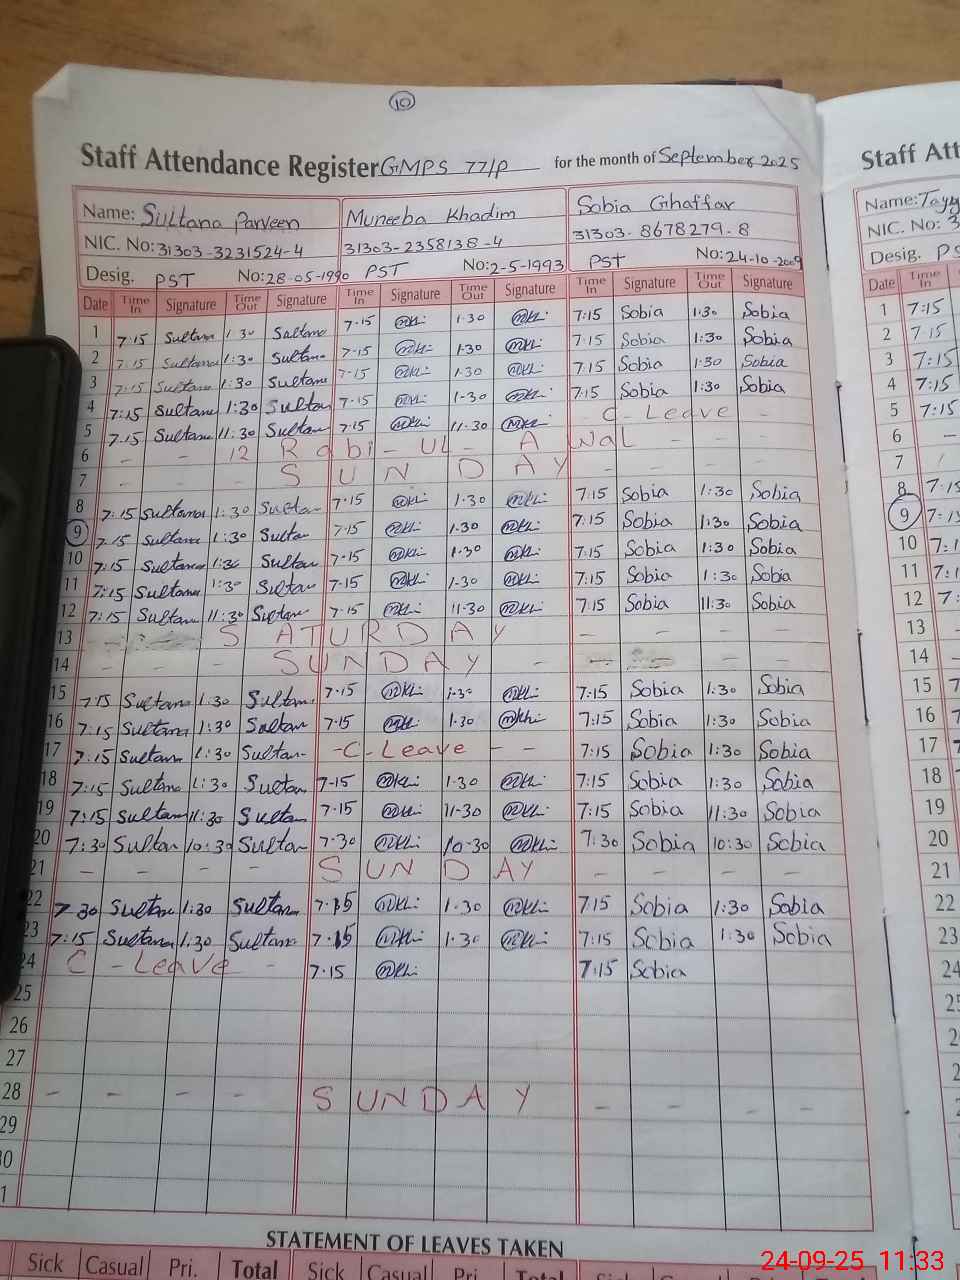 10
Staff Attendance Register GMPS 77/P for the month of September 2025
Name: Sultana Parveen Muneeba Khadim Sobia Ghaffar
NIC. No: 31303-3231524-4 31303-2358138-4 31303-8678279-8
Desig. PST No: 28-05-1990 PST No: 2-5-1993 PST No: 24-10-2009
Date Time In Signature Time Out Signature Time In Signature Time Out Signature Time In Signature Time Out Signature
1 7:15 Sultana 1:30 Sultana 7-15 1-30 7:15 Sobia 1:30 Sobia
2 7:15 Sultana 1:30 Sultana 7-15 1-30 7:15 Sobia 1:30 Sobia
3 7:15 Sultana 1:30 Sultana 7-15 1-30 7:15 Sobia 1:30 Sobia
4 7:15 Sultana 1:30 Sultan 7-15 1-30 7:15 Sobia 1:30 Sobia
5 7:15 Sultana 11:30 Sultan 7-15 11-30 - C - Leave -
6 - - 12 Rabi-UL-AWAL - - -
7 - - - SUNDAY - - - -
8 7:15 Sultana 1:30 Sultan 7-15 1-30 7:15 Sobia 1:30 Sobia
9 7:15 Sultana 1:30 Sultan 7-15 1-30 7:15 Sobia 1:30 Sobia
10 7:15 Sultana 1:30 Sultan 7-15 1-30 7:15 Sobia 1:30 Sobia
11 7:15 Sultana 1:30 Sultan 7-15 1-30 7:15 Sobia 1:30 Sobia
12 7:15 Sultana 11:30 Sultan 7-15 11-30 7:15 Sobia 11:30 Sobia
13 - - SATURDAY - - - -
14 - - - SUNDAY - - - - -
15 7:15 Sultana 1:30 Sultan 7-15 1-30 7:15 Sobia 1:30 Sobia
16 7:15 Sultana 1:30 Sultan 7-15 1-30 7:15 Sobia 1:30 Sobia
17 7:15 Sultana 1:30 Sultan - C - Leave - - 7:15 Sobia 1:30 Sobia
18 7:15 Sultana 1:30 Sultan 7-15 1-30 7:15 Sobia 1:30 Sobia
19 7:15 Sultan 11:30 Sultan 7-15 11-30 7:15 Sobia 11:30 Sobia
20 7:30 Sultan 10:30 Sultan 7-30 10-30 7:30 Sobia 10:30 Sobia
21 - - - - SUNDAY - - - -
22 7:30 Sultan 1:30 Sultan 7-15 1-30 7:15 Sobia 1:30 Sobia
23 7:15 Sultana 1:30 Sultana 7-15 1-30 7:15 Sobia 1:30 Sobia
24 C - Leave - 7-15 7:15 Sobia
25
26
27
28 - - - - SUNDAY - - - -
29
30
STATEMENT OF LEAVES TAKEN
Sick Casual Pri. Total Sick Casual Pri.
Staff Att
Name:
NIC. No:
Desig.
Date Time In
1 7:15
2 7:15
3 7:15
4 7:15
5 7:15
6 -
7
8
9
10
11
12
13 -
14 -
15
16
17
18
19
20
21
22
23
24
24-09-25 11:33